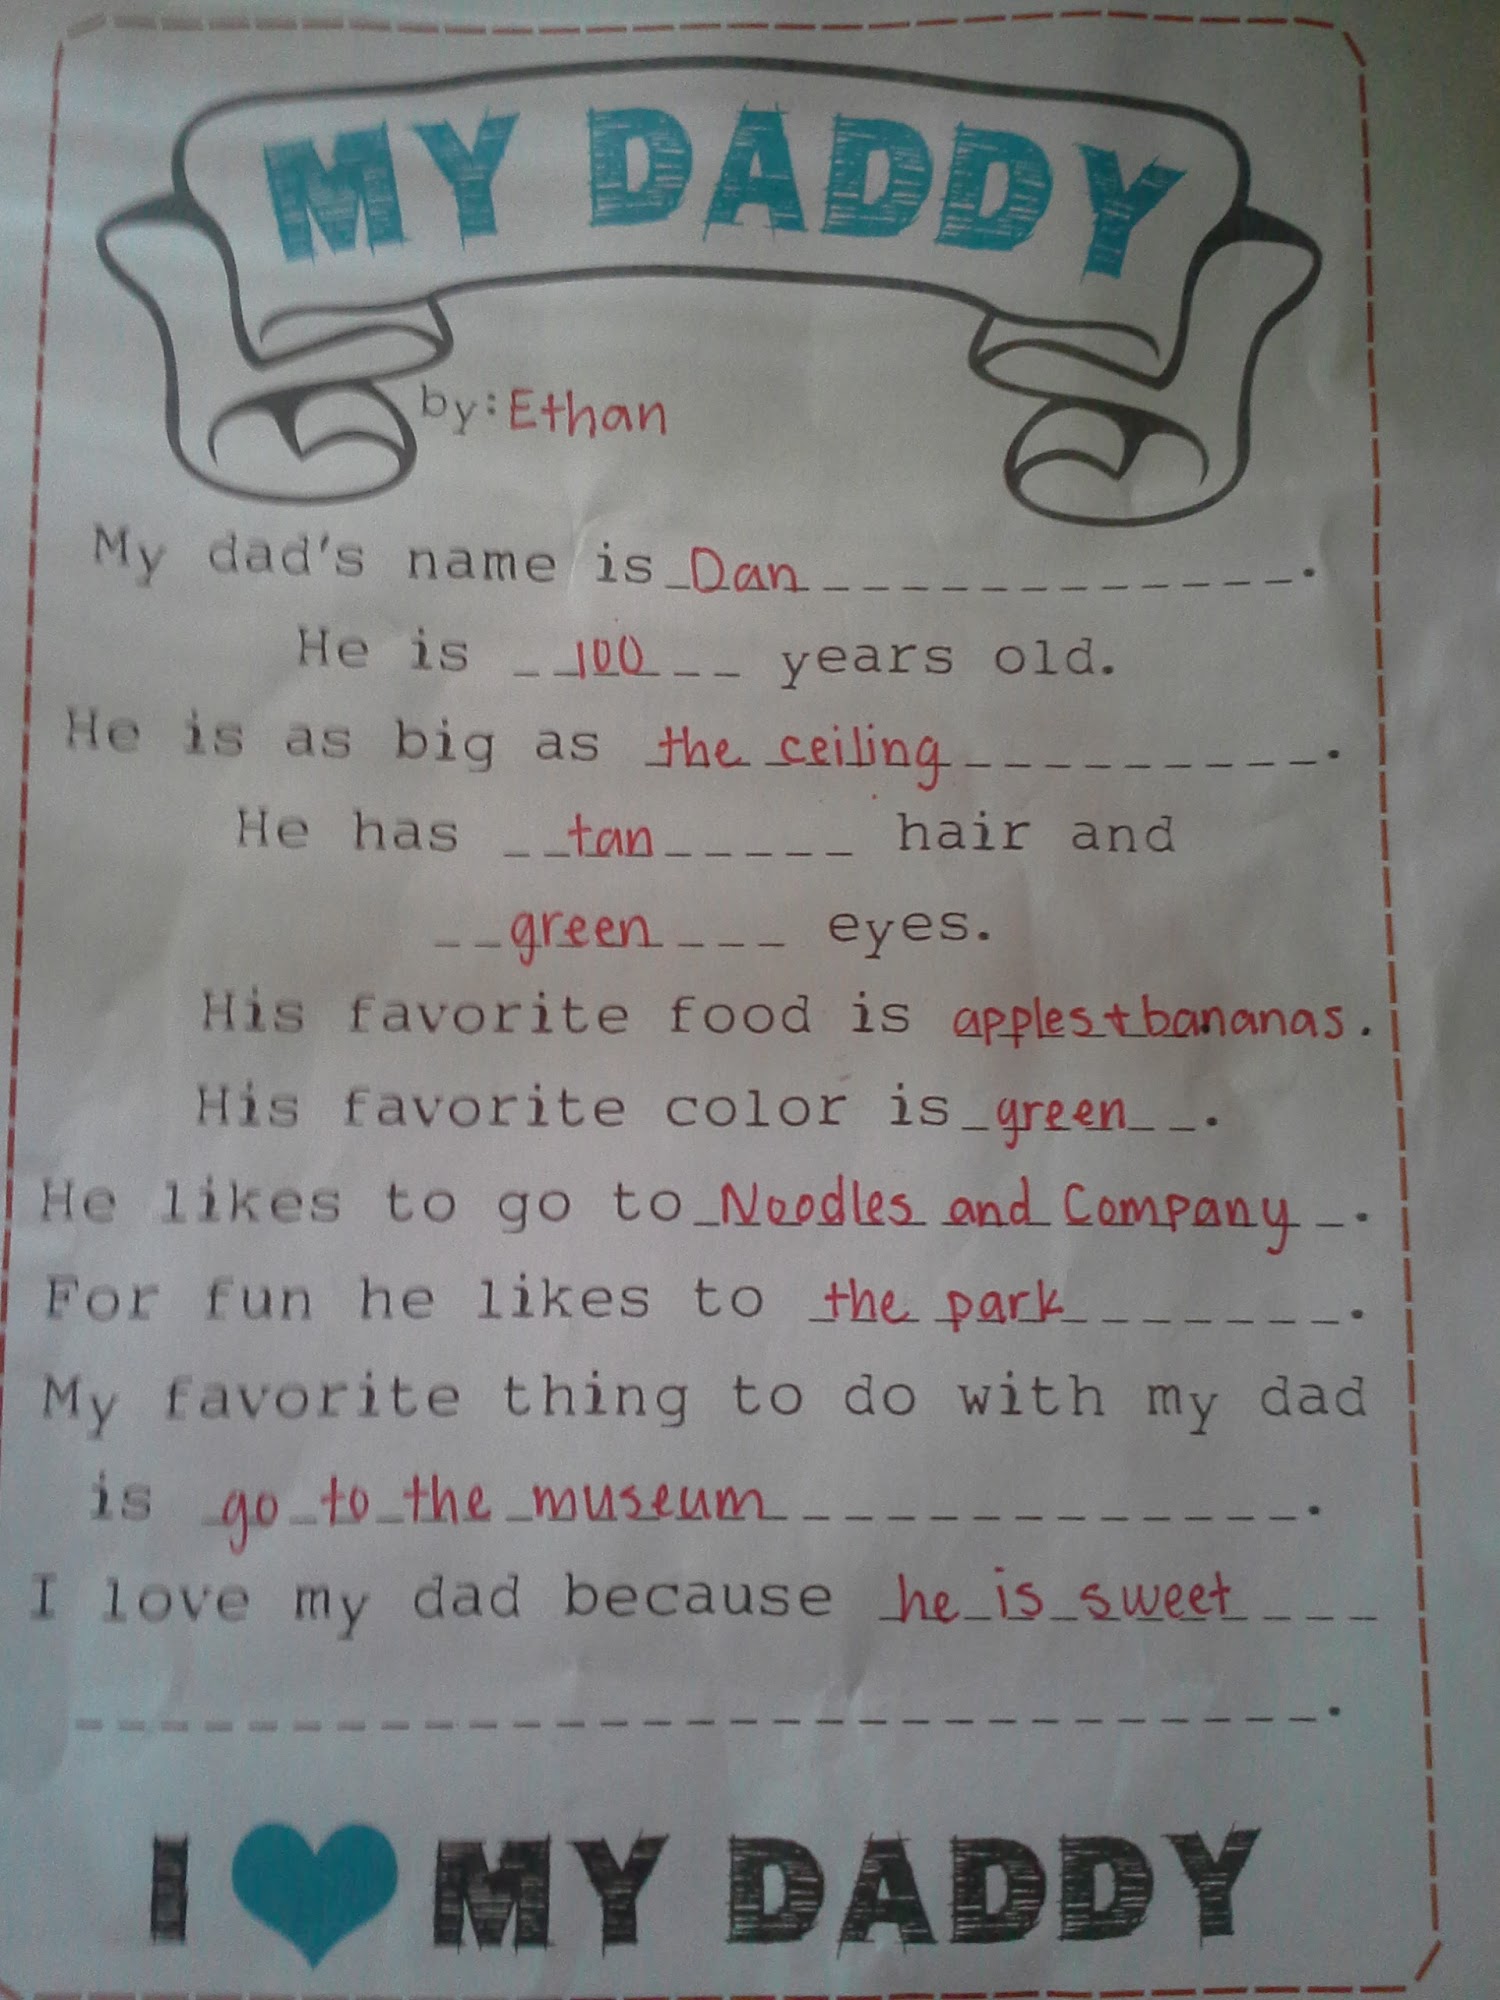 MY DADDY
by: Ethan
My dad's name is Dan.
He is 100 years old.
He is as big as the ceiling.
He has tan hair and
green eyes.
His favorite food is apples + bananas.
His favorite color is green.
He likes to go to Noodles and Company.
For fun he likes to the park.
My favorite thing to do with my dad
is go to the museum.
I love my dad because he is sweet
.
I ♥ MY DADDY